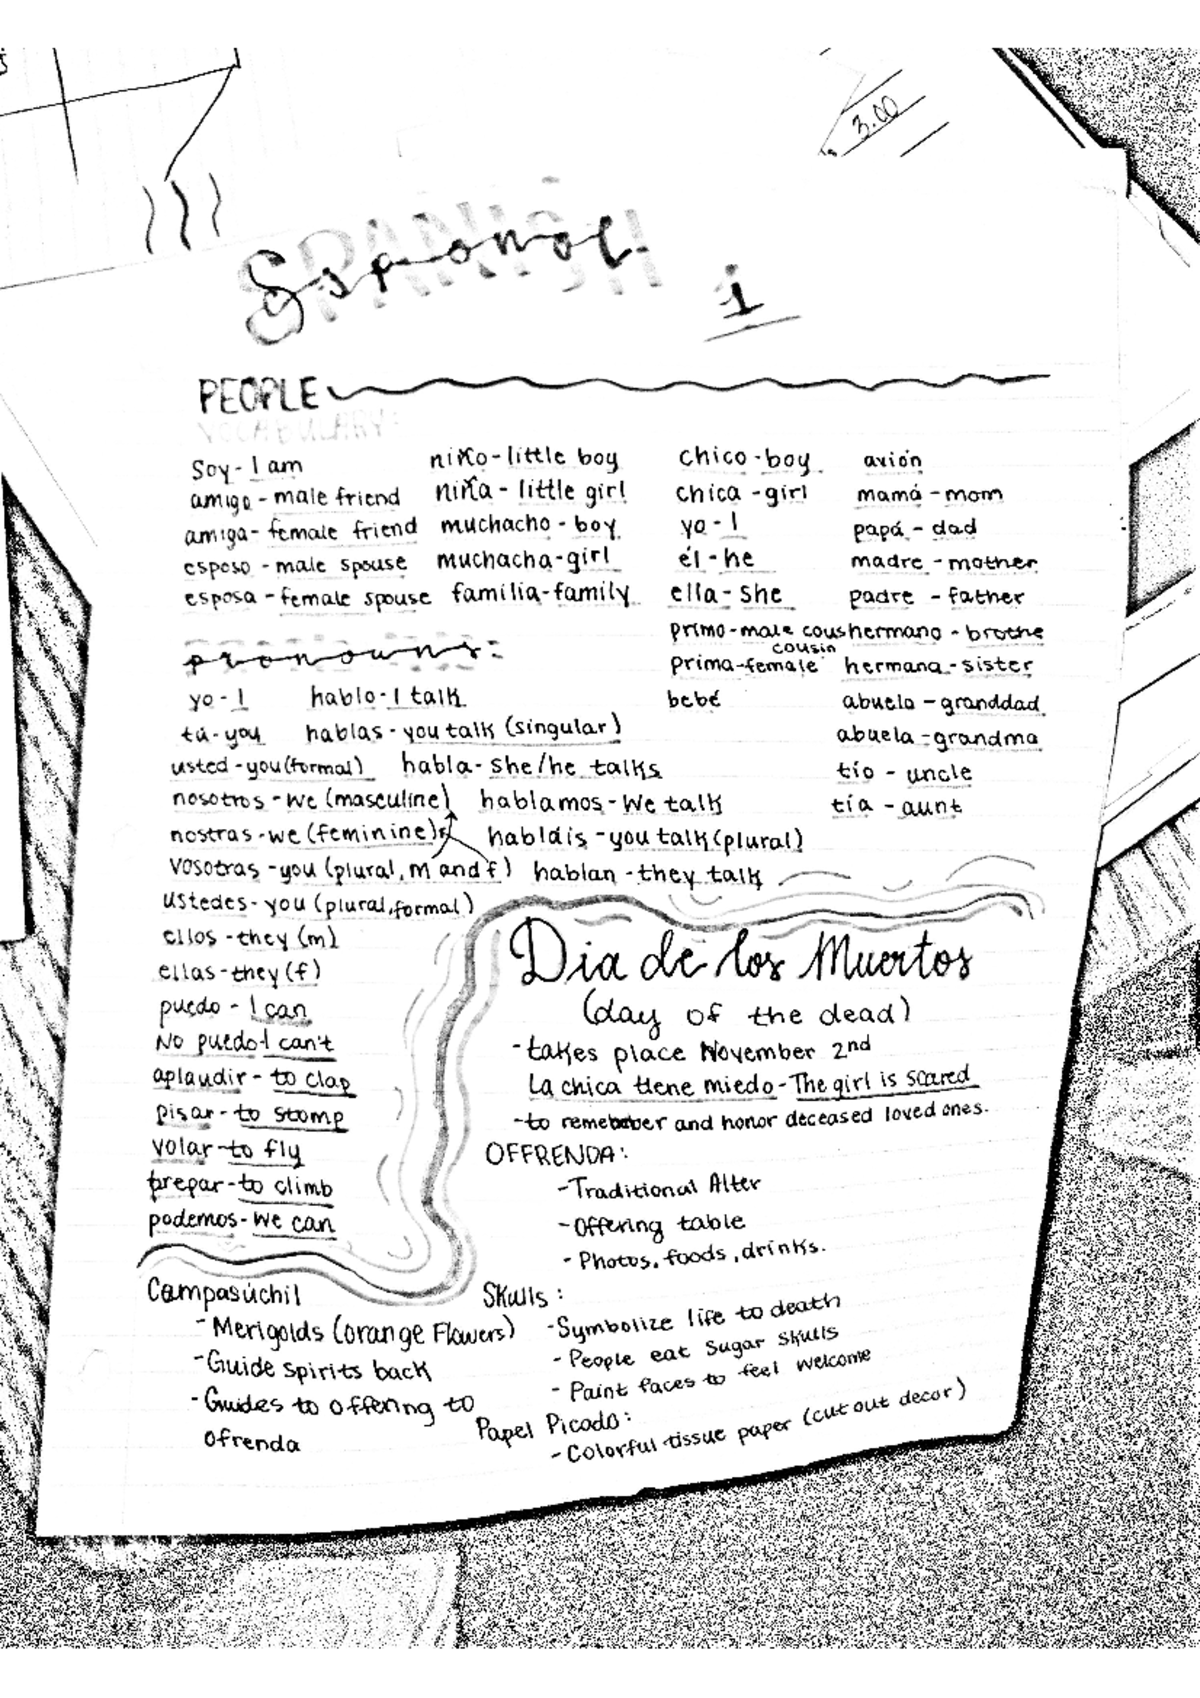 3.00
Español
SPANISH
1
PEOPLE
VOCABULARY:
Soy - I am
amigo - male friend
amiga - female friend
esposo - male spouse
esposa - female spouse
niño - little boy
niña - little girl
muchacho - boy
muchacha - girl
familia - family
chico - boy
chica - girl
yo - I
él - he
ella - she
primo - male cous
prima - female cousin
bebé
avión
mamá - mom
papá - dad
madre - mother
padre - father
hermano - brothe
hermana - sister
abuelo - granddad
abuela - grandma
tío - uncle
tía - aunt
pronouns:
yo - I
tú - you
usted - you (formal)
nosotros - we (masculine)
nostras - we (feminine)
vosotras - you (plural, m and f)
ustedes - you (plural, formal)
ellos - they (m)
ellas - they (f)
puedo - I can
No puedo - I can't
aplaudir - to clap
pisar - to stomp
volar - to fly
trepar - to climb
podemos - we can
hablo - I talk
hablas - you talk (singular)
habla - she/he talks
hablamos - we talk
habláis - you talk (plural)
hablan - they talk
Dia de los Muertos
(day of the dead)
- takes place November 2nd
La chica tiene miedo - The girl is scared
- to remember and honor deceased loved ones.
OFFRENDA:
- Traditional Alter
- Offering table
- Photos, foods, drinks.
Skulls:
- Symbolize life to death
- People eat sugar skulls
- Paint faces to feel welcome
Papel Picado:
- Colorful tissue paper (cut out decor)
Campasúchil
- Merigolds (orange Flowers)
- Guide spirits back
- Guides to offering to
ofrenda